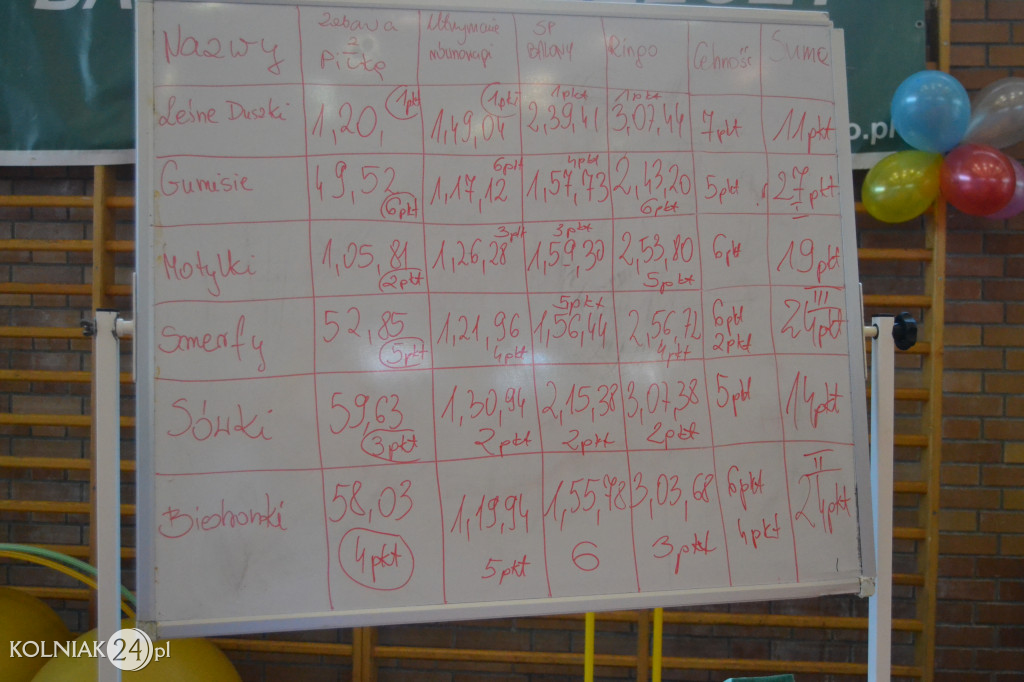 Nazwy Zabawa z Piłką Utrzymanie równowagi SP BALONY Ringo Celność Suma
Leśne Duszki 1,20, 1pkt 1,49,04 1pkt 2,39,41 1pkt 3,07,44 1pkt 7pkt 11pkt
Gumisie 49,52 6pkt 1,17,12 6pkt 1,57,73 4pkt 2,43,20 6pkt 5pkt 27pkt I
Motylki 1,05,81 2pkt 1,26,28 3pkt 1,59,30 3pkt 2,53,80 5pkt 6pkt 19pkt
Smerfy 52,85 5pkt 1,21,96 4pkt 1,56,44 5pkt 2,56,72 4pkt 6pkt 2pkt 24pkt III
Sówki 59,63 3pkt 1,30,94 2pkt 2,15,38 2pkt 3,07,38 2pkt 5pkt 14pkt
Biedronki 58,03 4pkt 1,19,94 5pkt 1,55,78 6 3,03,68 3pkt 6pkt 4pkt 24pkt II
o.pl
KOLNIAK24.pl